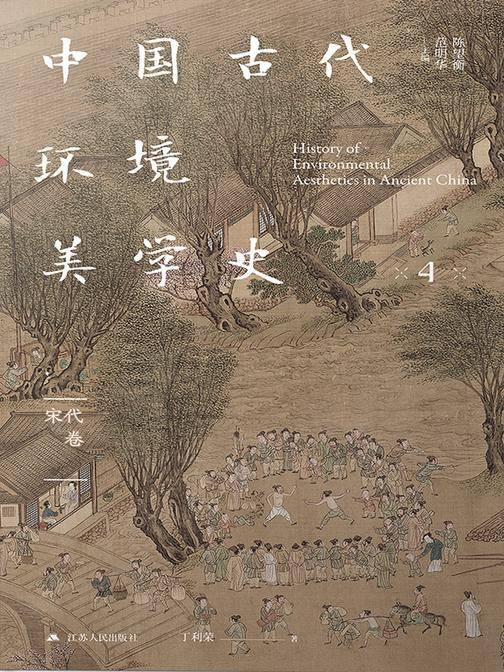 中国古代
环境
美学史
陈望衡
范明华
主编
History of
Environmental
Aesthetics in Ancient China
4
宋代
卷
江苏人民出版社
丁利荣 著